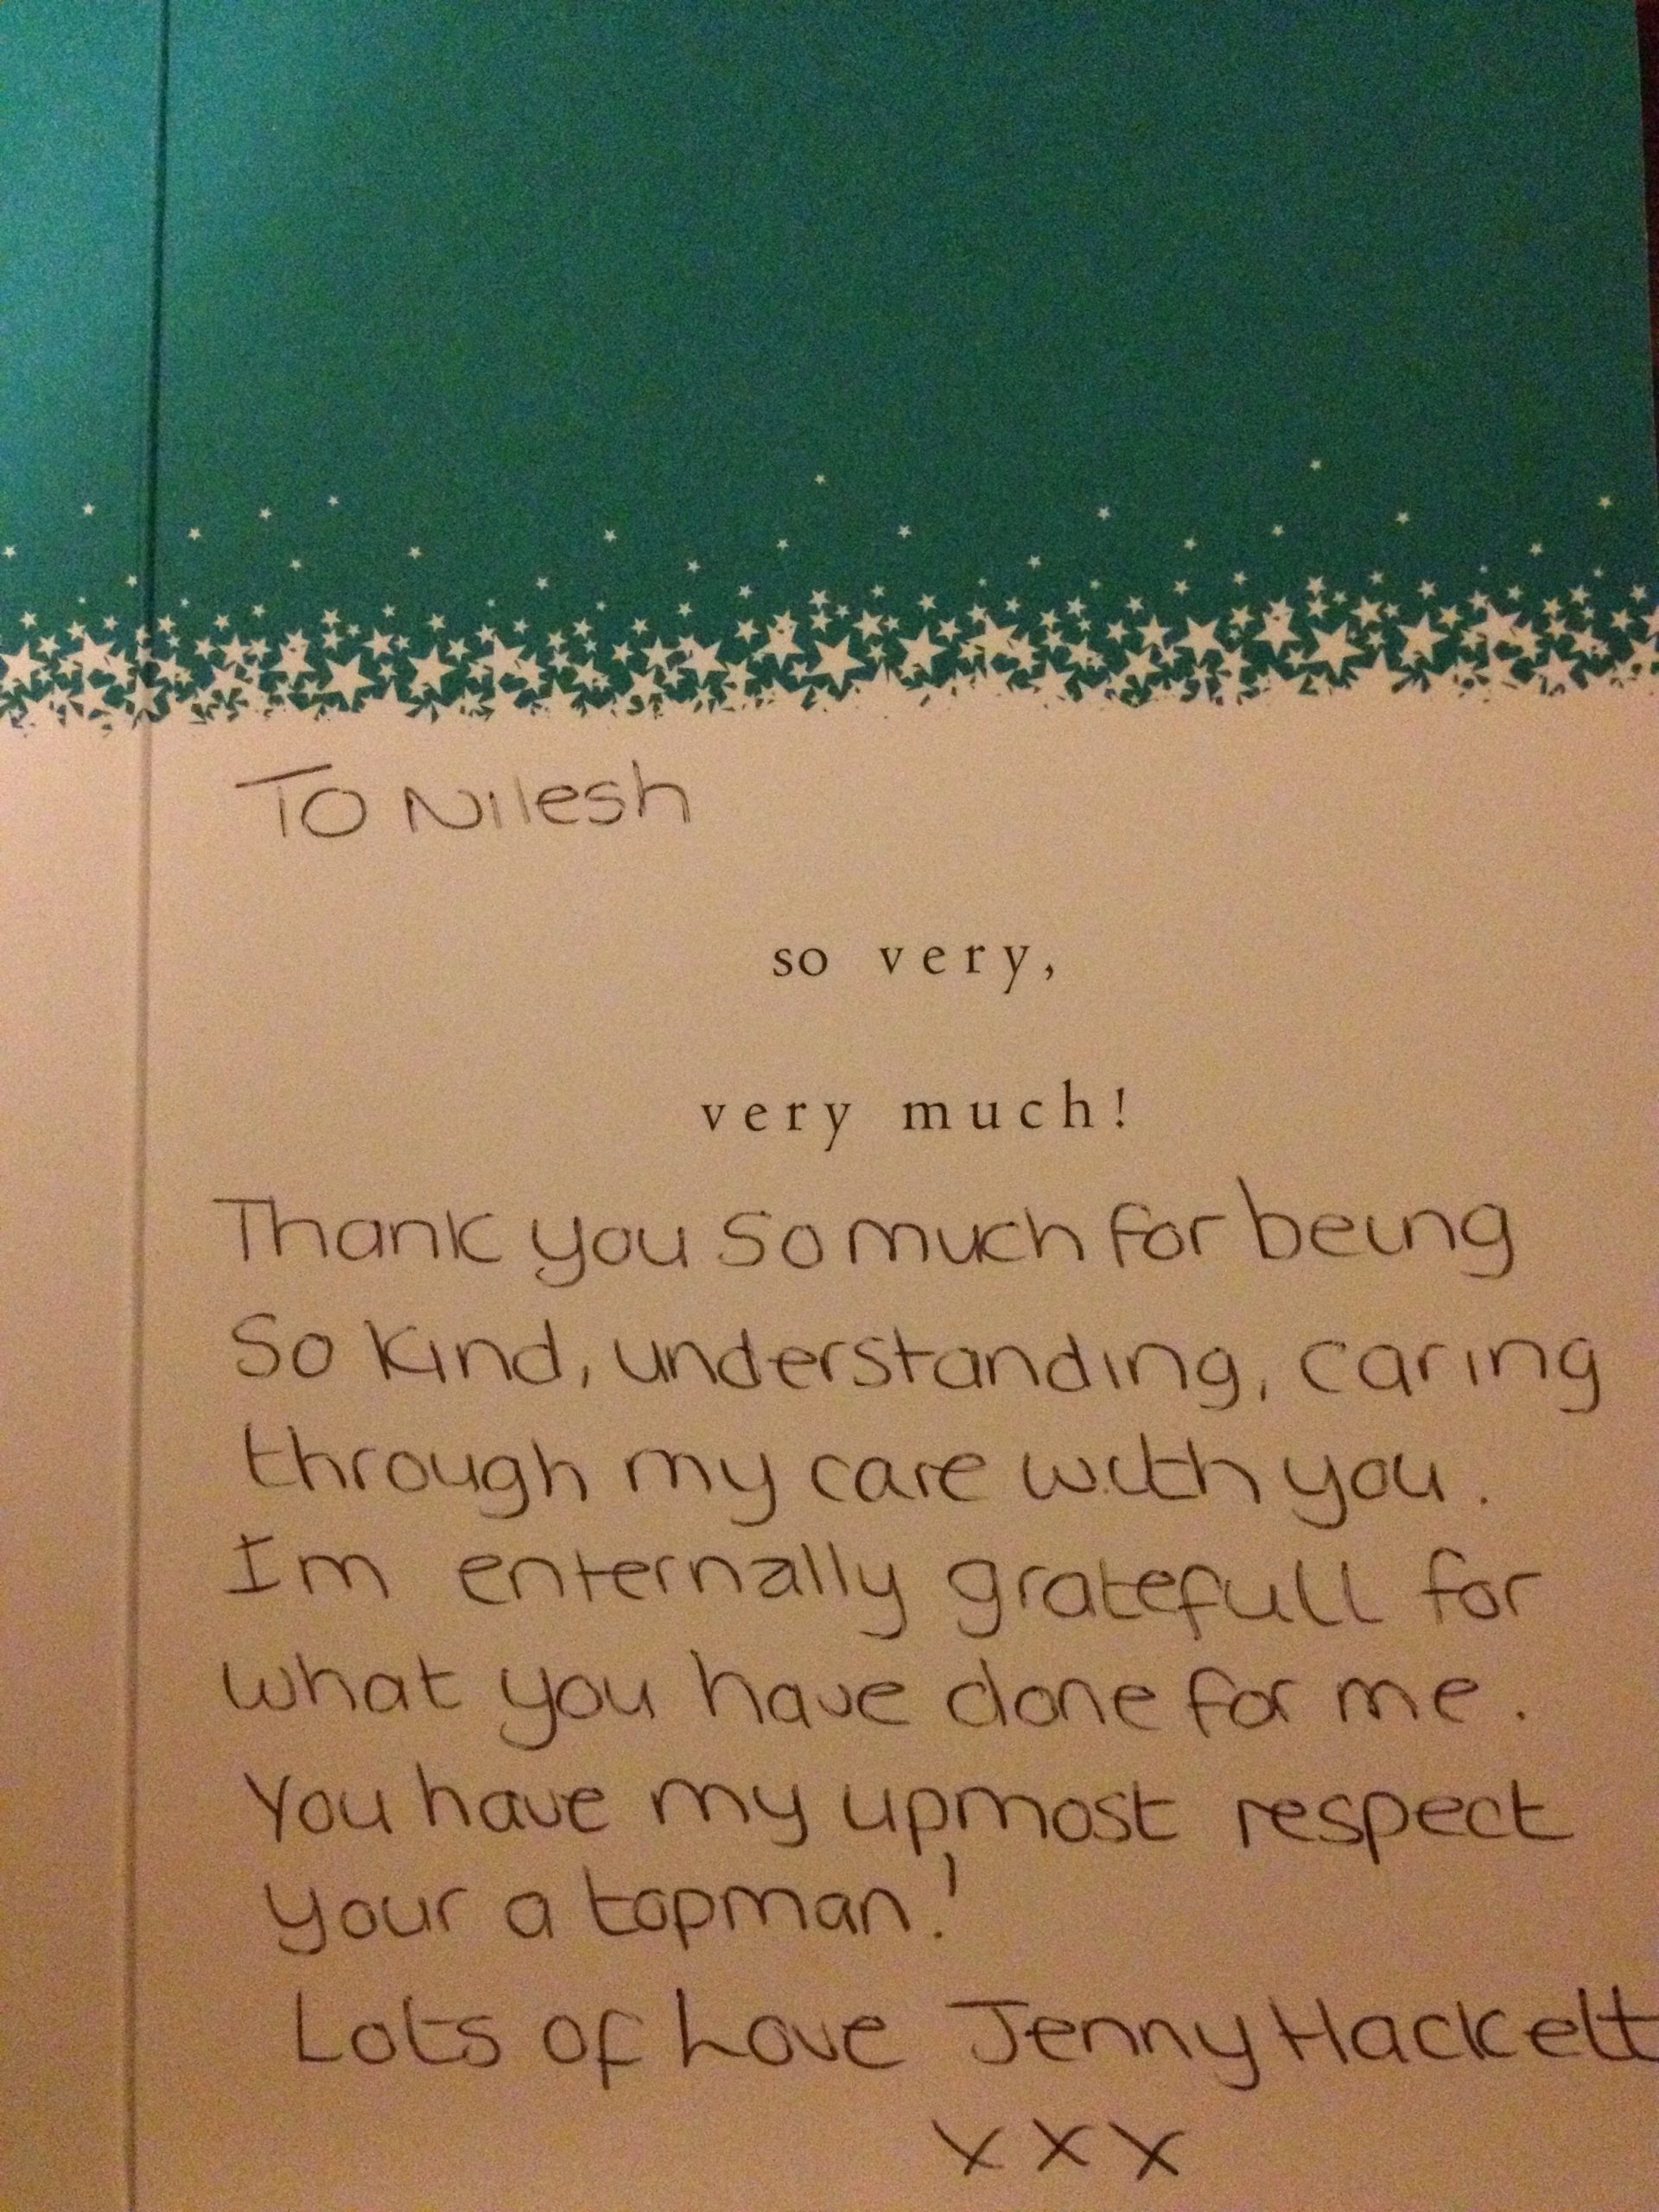 To Nilesh
so very,
very much!
Thank you so much for being
so kind, understanding, caring
through my care with you.
Im enternally gratefull for
what you have done for me.
You have my upmost respect
your a topman!
Lots of Love Jenny Hackett
xxx